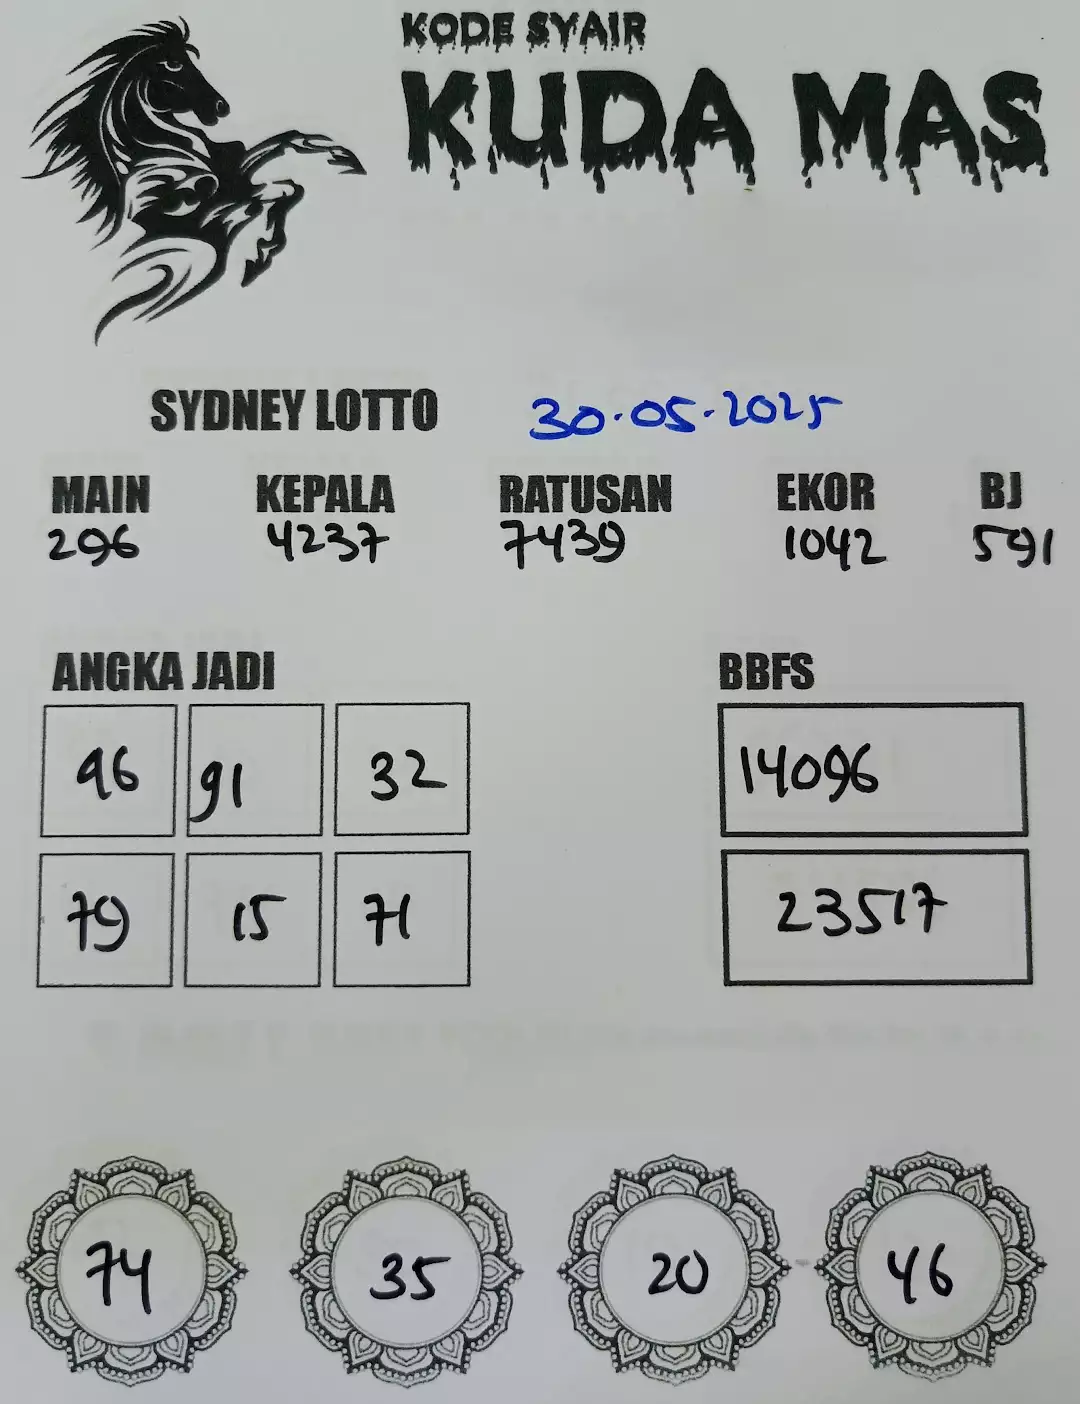 KODE SYAIR
KUDA MAS
SYDNEY LOTTO 30.05.2025
MAIN KEPALA RATUSAN EKOR BJ
296 4237 7439 1042 591
ANGKA JADI BBFS
96 91 32 14096
79 15 71 23517
74 35 20 46